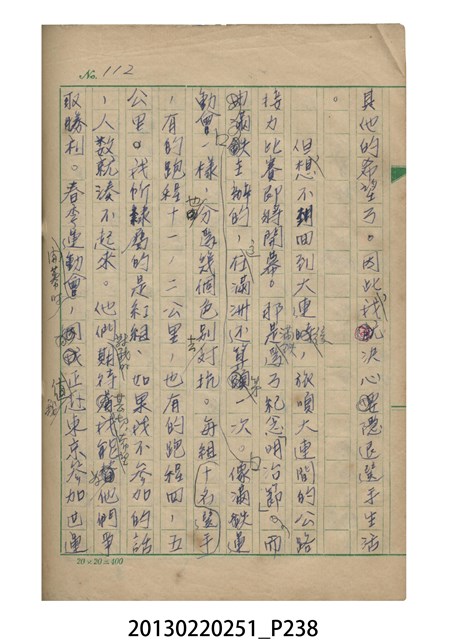 No. 112
其他的希望了。因此我決心要隱退選手生活
。
但想不到回到大連時，旅順大連間的公路
接力比賽即將開幕。那是為了紀念明治節。而
滿鐵主辦的，在滿洲還算第一次。像滿鐵運
動會一樣，分為幾個色別對抗。每組十名選手
，有的跑程十一、二公里，也有的跑程四，五
公里。我所隸屬的是紅組，如果我不參加的話
，人数就湊不起來。他們期待我能替他們爭
取勝利。春季運動會，因我正赴東京參加巴運
20×20=400
20130220251_P238